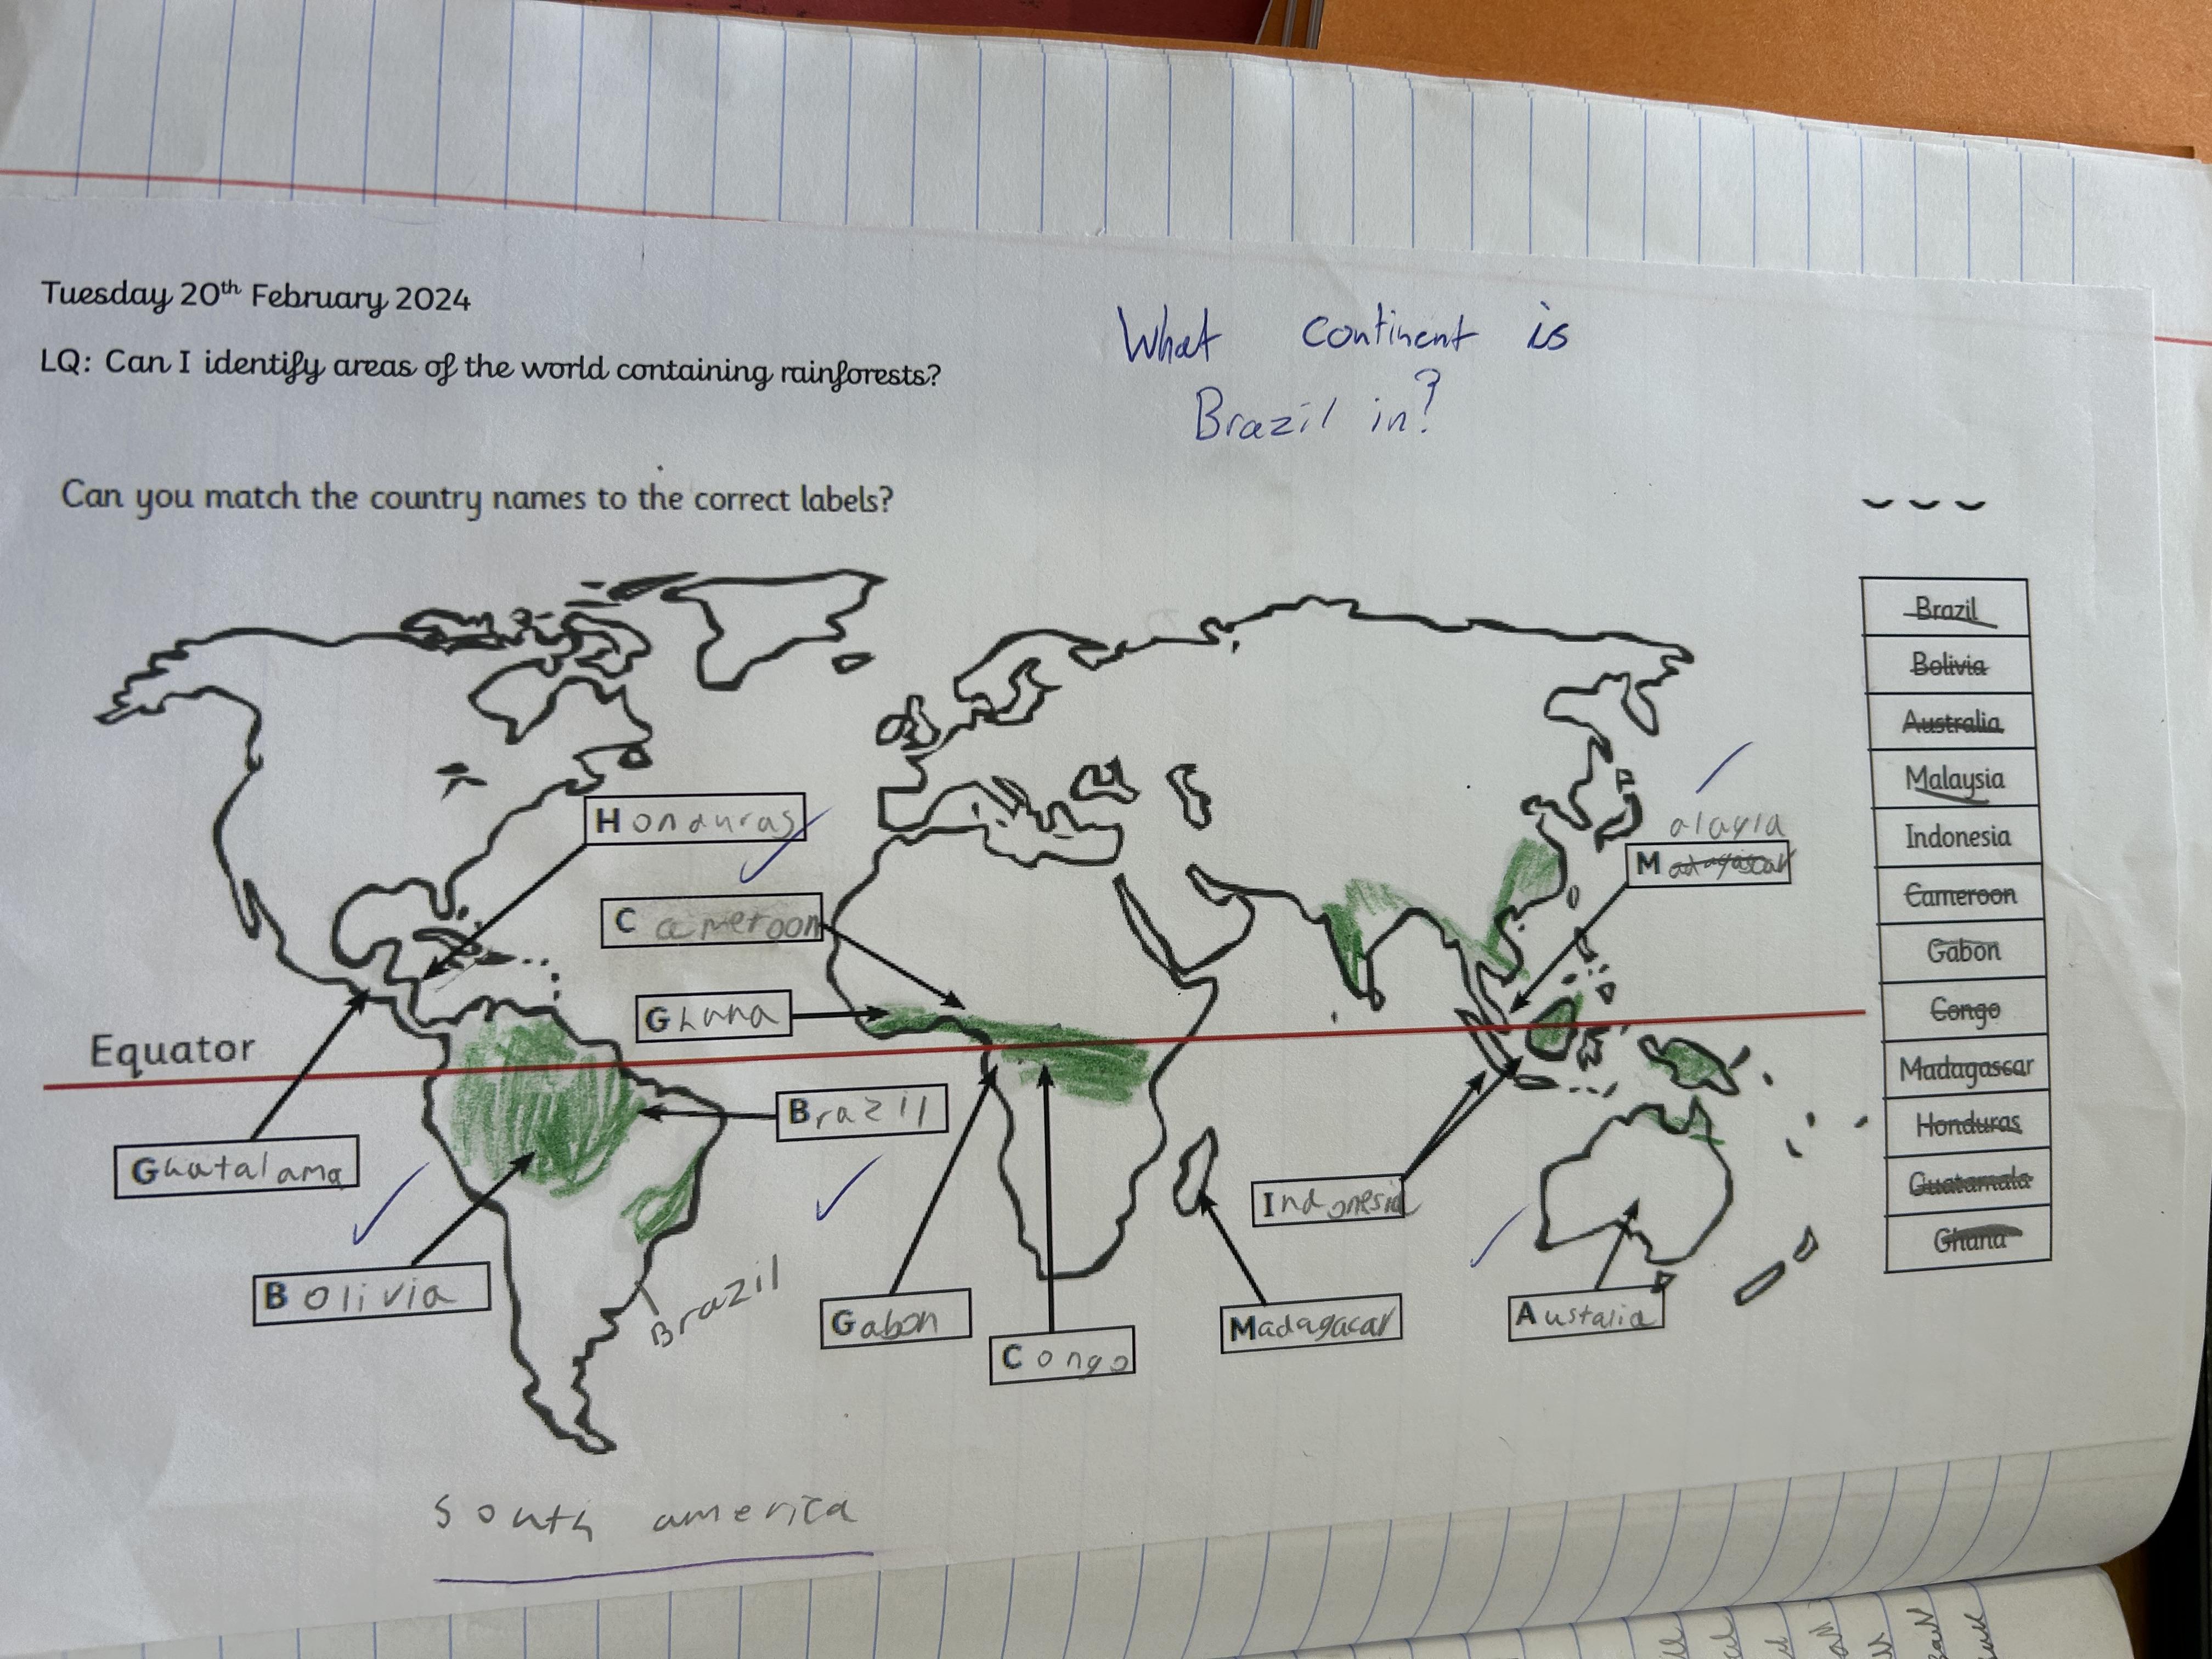 Tuesday 20th February 2024
What continent is
LQ: Can I identify areas of the world containing rainforests?
Brazil in?
Can you match the country names to the correct labels?
Brazil
Bolivia
Australia
Malaysia
Indonesia
Cameroon
Gabon
Congo
Madagascar
Honduras
Guatamala
Ghana
Honduras
alaysia
Madagascar
Cameroon
Ghana
Equator
Brazil
Ghatalama
Indonesia
Bolivia
Brazil
Gabon
Congo
Madagacar
Austalia
South america